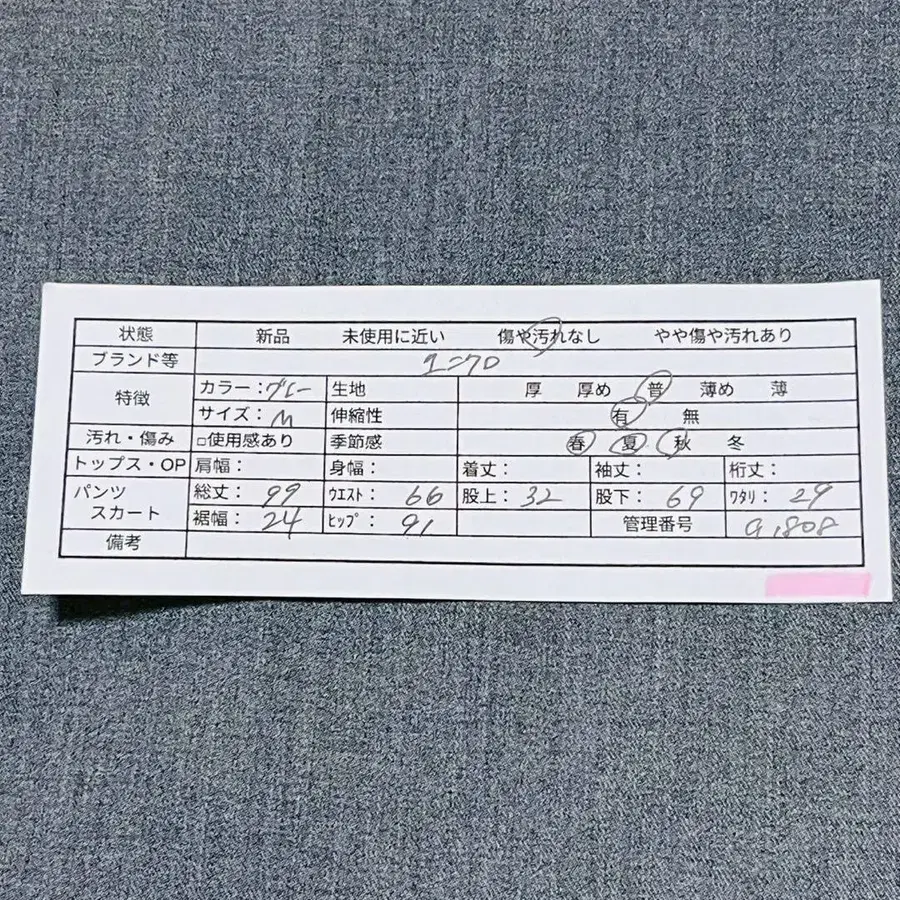 状態 新品 未使用に近い 傷や汚れなし やや傷や汚れあり
ブランド等 ユニクロ
特徴 カラー：グレー 生地 厚 厚め 普 薄め 薄
サイズ：M 伸縮性 有 無
汚れ・傷み □使用感あり 季節感 春 夏 秋 冬
トップス・OP 肩幅： 身幅： 着丈： 袖丈： 桁丈：
パンツ 総丈： 99 ｳｴｽﾄ： 66 股上： 32 股下： 69 ﾜﾀﾘ： 29
スカート 裾幅： 24 ﾋｯﾌﾟ： 91 管理番号
備考